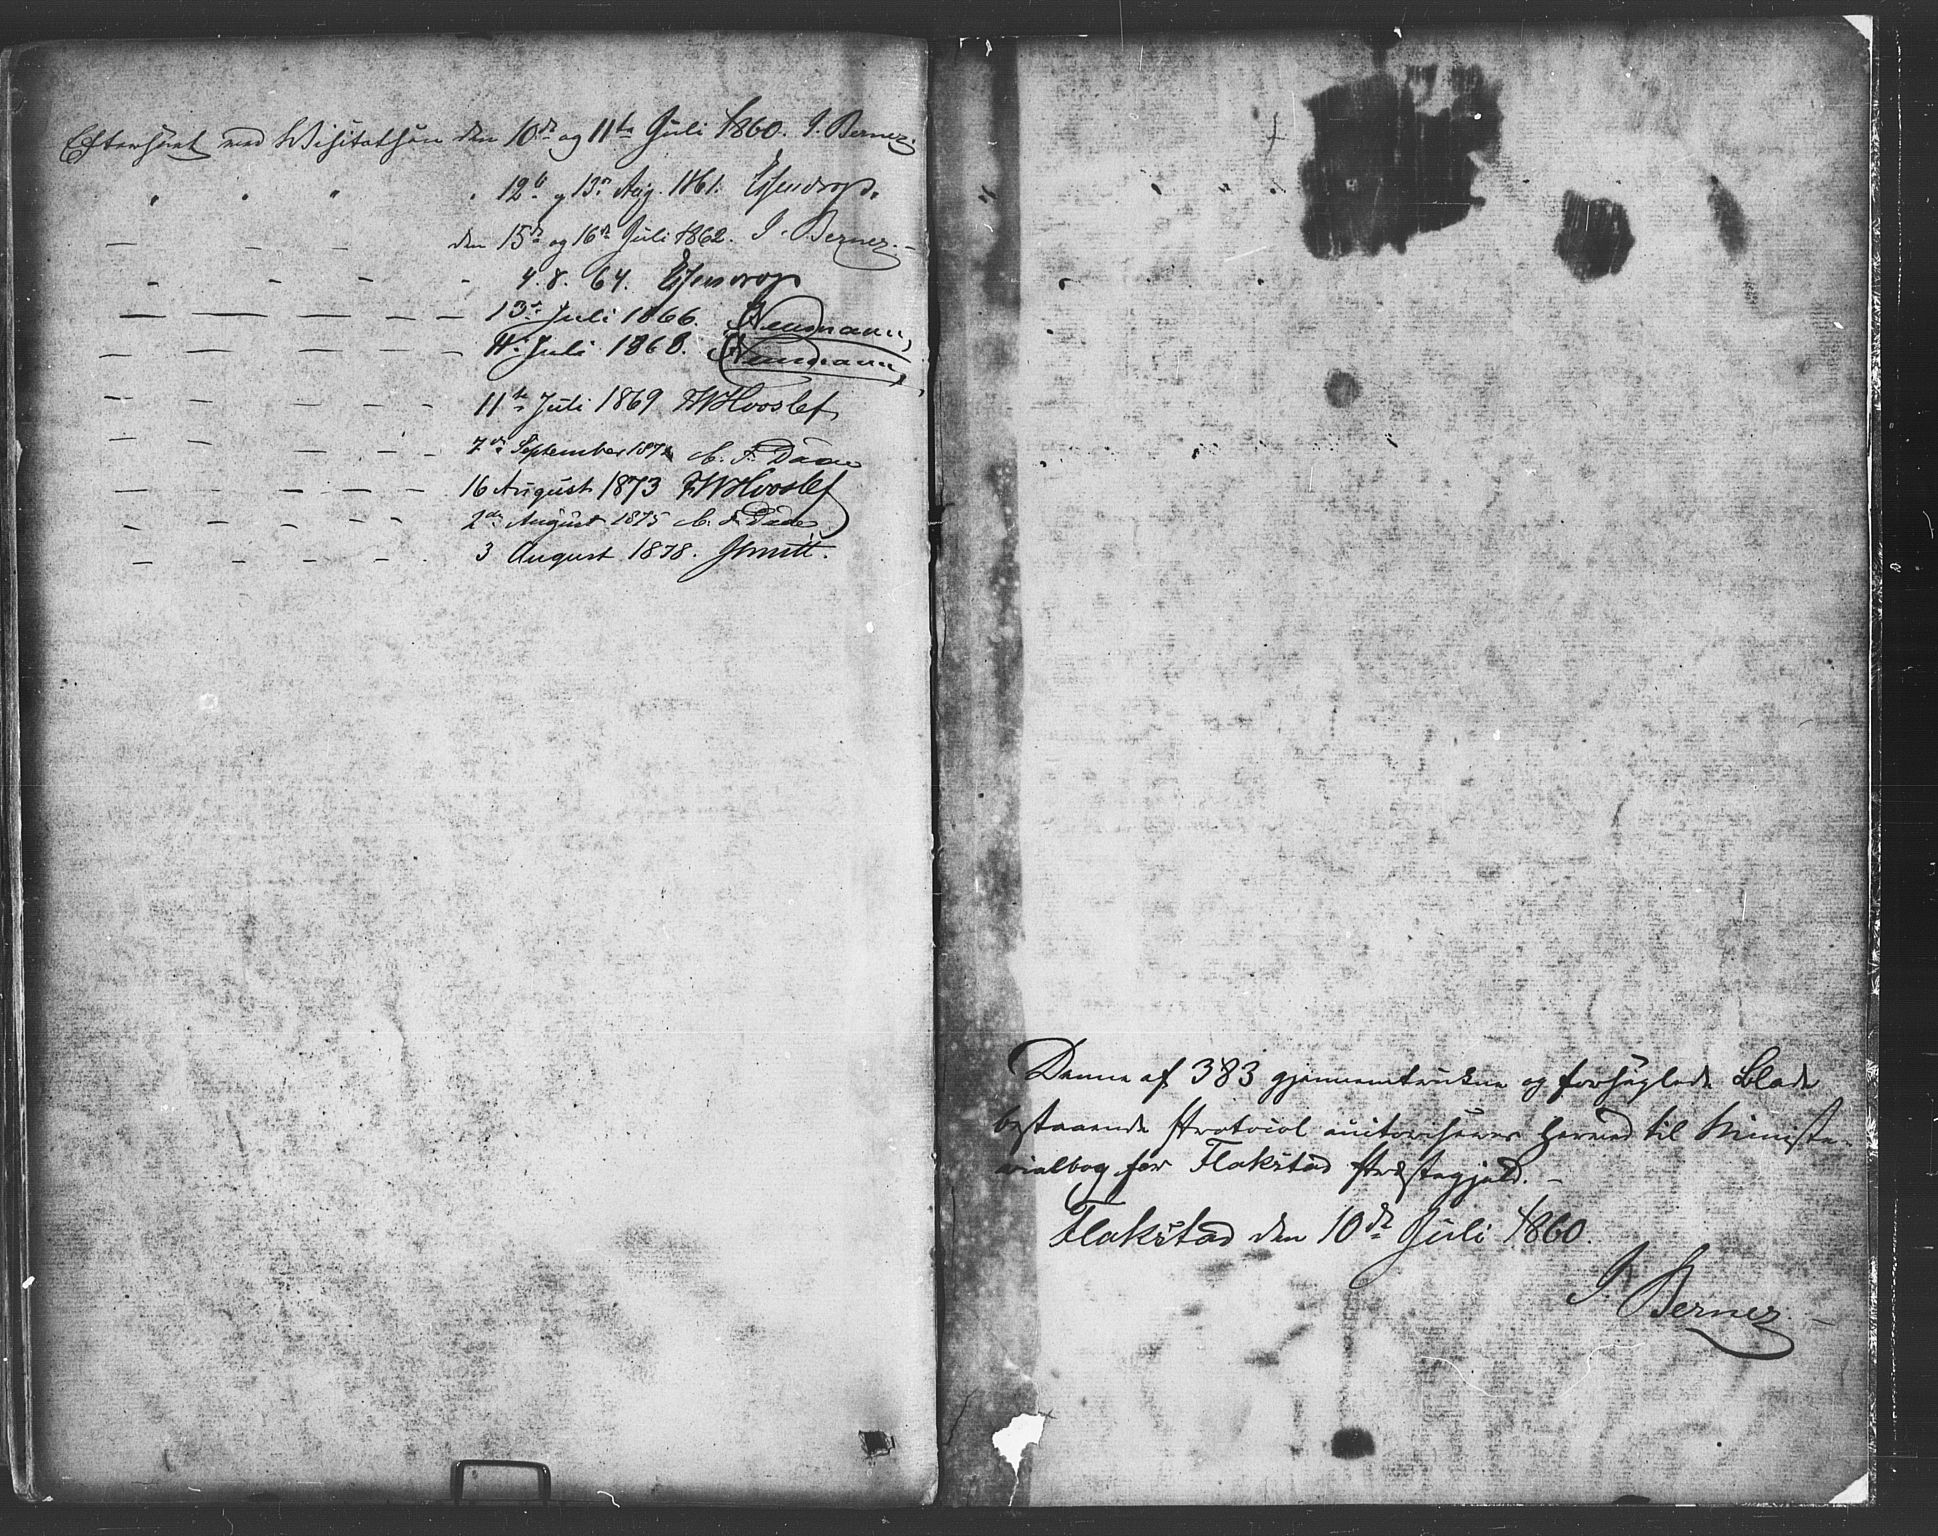 Efterseet ved Visitatsen den 10de og 11te Juli 1860. J. Berner.
" " " " 12te og 13de Aug. 1861. Essendrop.
— — — den 15de og 16de Juli 1862. J. Berner. —
- - - - 4.8.64. Essendrop
— — — — — 13de Juli 1866. Neumann,
— — — — — Juli 1868. Neumann,
— — — — — 11te Juli 1869 FWHvoslef
— — — — — 7de September 1872 C. F. Daae
— — — — — 16 August 1873 FWHvoslef
— — — — — 2den August 1875 C. F. Daae
— — — — — 3 August 1878. JSmitt.
Denne af 383 gjennemtrukne og forseglede Blade
bestaaende Protocol autoriseres herved til Ministe-
rialbog for Flakstad Præstegjeld. —
Flakstad den 10de Juli 1860.
J. Berner. —